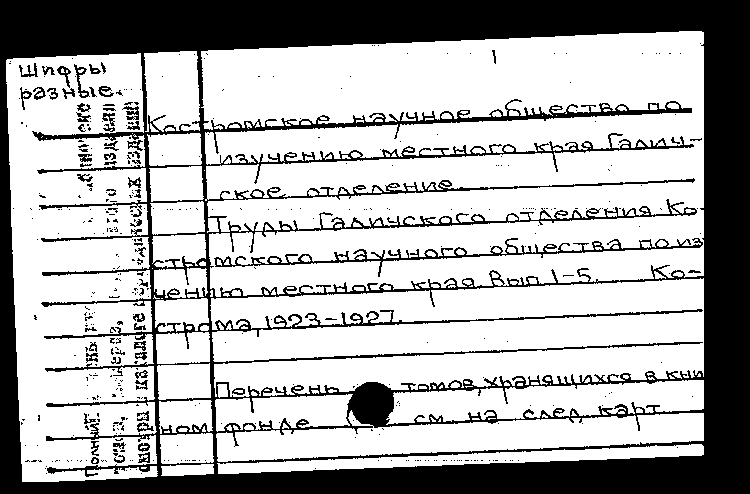 1
Шифры
разные.
Костромское научное общество по
изучению местного края Галич-
ское отделение.
Труды Галичского отделения Ко-
стромского научного общества по из
чению местного края. Вып. 1-5. Ко-
строма, 1923-1927.
Перечень томов, хранящихся в кни
ном фонде см. на след. карт
Полный
томов,
смотри в каталоге периодических изданий